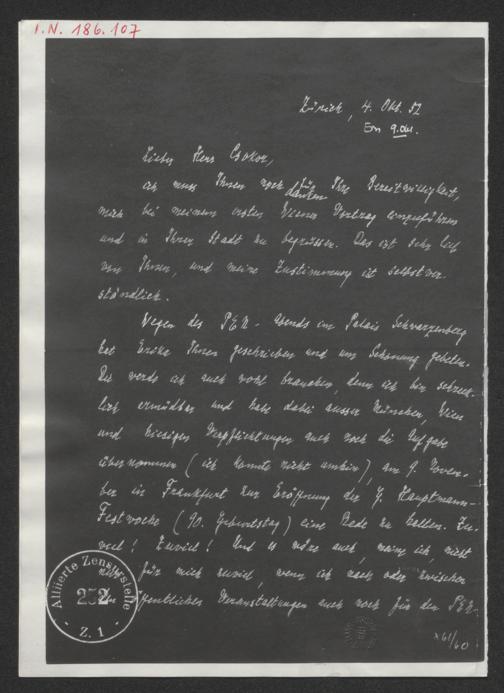 I.N. 186.107
Zürich, 4. Okt. 52
Em 9.Okt.
Lieber Herr Csokor,
ich muss Ihnen noch danken für Ihre Bereitwilligkeit,
mich bei meinem ersten Wiener Vortrag einzuführen
und in Ihrer Stadt zu begrüssen. Das ist sehr lieb
von Ihnen, und meine Zustimmung ist selbstver-
ständlich.
Wegen des PEN-Abends im Palais Schwarzenberg
hat Erika Ihnen geschrieben und um Schonung gebeten.
Die werde ich auch wohl brauchen, denn ich bin schreck-
lich ermüdbar und habe dabei ausser München, Wien
und hiesigen Verpflichtungen auch noch die Aufgabe
übernommen (ich konnte nicht umhin), am 9. Novem-
ber in Frankfurt zur Eröffnung der G. Hauptmann-
Festwoche (90. Geburtstag) eine Rede zu halten. Zu-
viel! Zuviel! Und es wäre auch, meine ich, nicht
für mich zuviel, wenn ich nach oder zwischen
den öffentlichen Veranstaltungen auch noch für den PEN-
Alliierte Zensurstelle
252
- Z. 1 -
x61/60